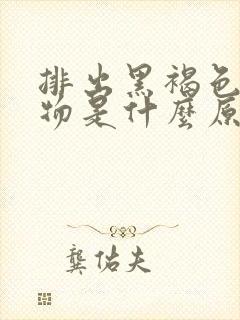 排出黑褐色
物是什麼原
龔佑夫